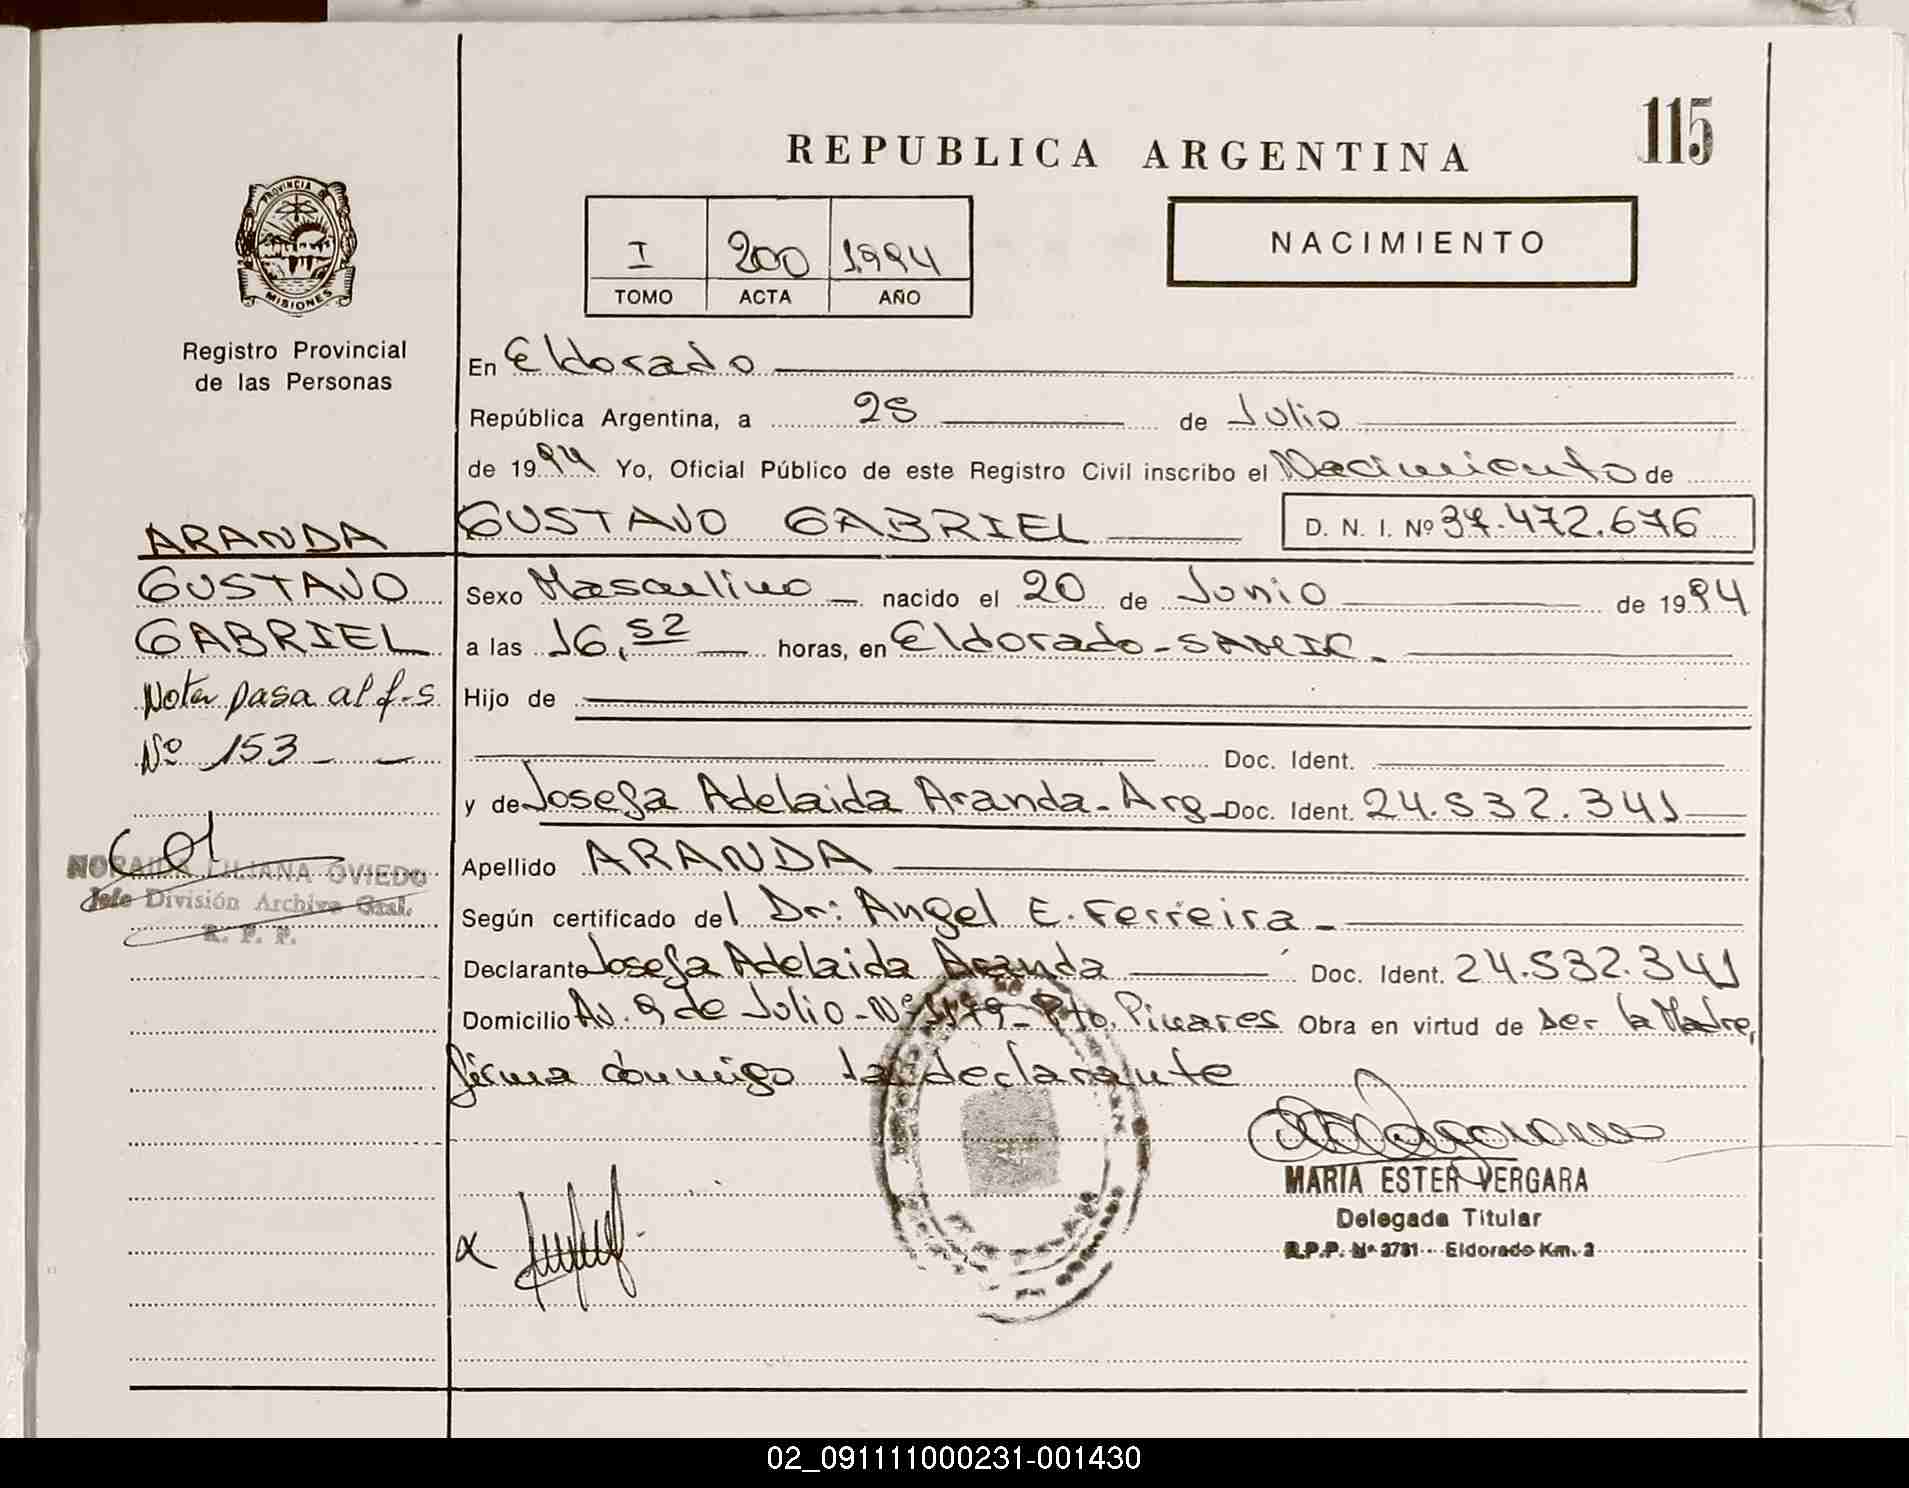 115
REPUBLICA ARGENTINA
PROVINCIA DE
MISIONES
Registro Provincial
de las Personas
I 200 1994
TOMO ACTA AÑO
NACIMIENTO
En Eldorado
República Argentina, a 25 de Julio
de 1994 Yo, Oficial Público de este Registro Civil inscribo el Nacimiento de
GUSTAVO GABRIEL D. N. I. Nº 37.472.676
ARANDA
GUSTAVO
GABRIEL
Nota pasa al f-s
Nº 153
NORAIDA LILIANA OVIEDO
Jefe División Archivo Gral.
R. P. P.
Sexo Masculino nacido el 20 de Junio de 1994
a las 16,52 horas, en Eldorado-SAMIC.
Hijo de
Doc. Ident.
y de Josefa Adelaida Aranda-Arg Doc. Ident. 24.532.341
Apellido ARANDA
Según certificado del Dr: Angel E. Ferreira
Declarante Josefa Adelaida Aranda Doc. Ident. 24.532.341
Domicilio Av. 9 de Julio-Nº Pto. Piñares Obra en virtud de ser la Madre,
firma conmigo la declarante
MARIA ESTER VERGARA
Delegada Titular
R.P.P. Nº 2731 - Eldorado Km. 2
02_091111000231-001430